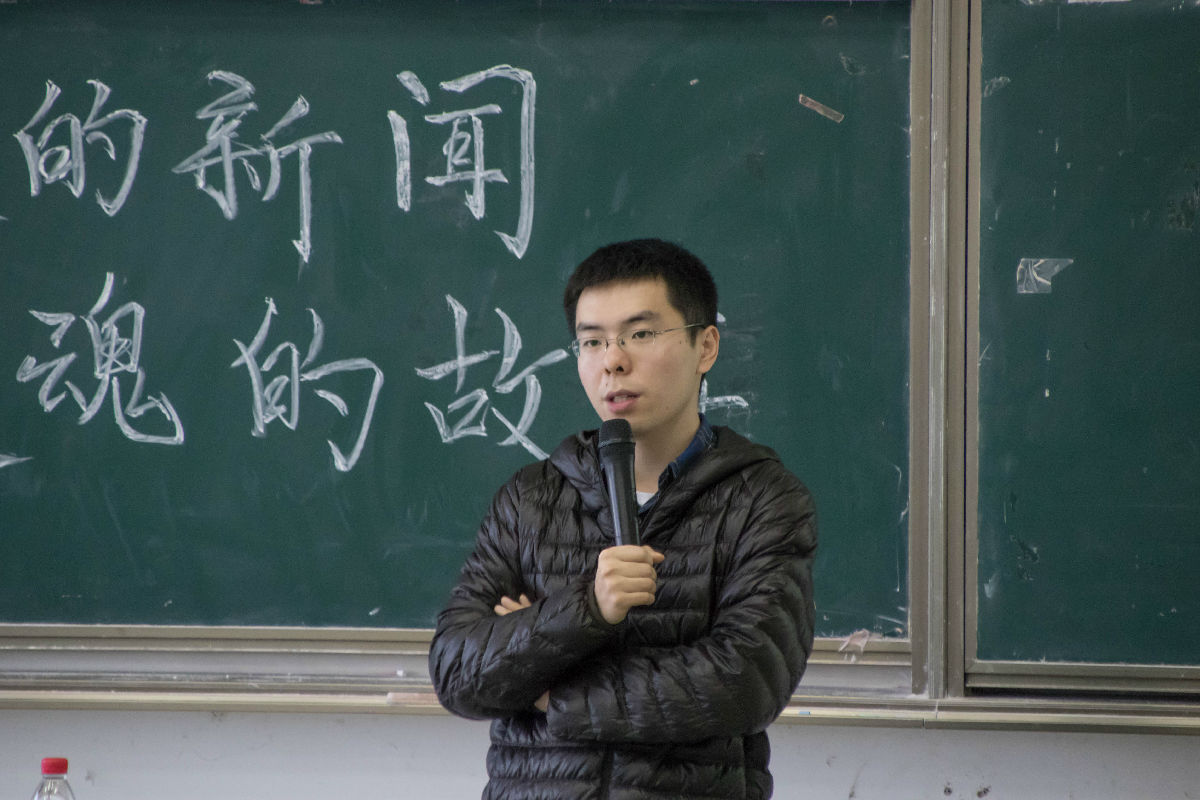 的新闻
魂的故